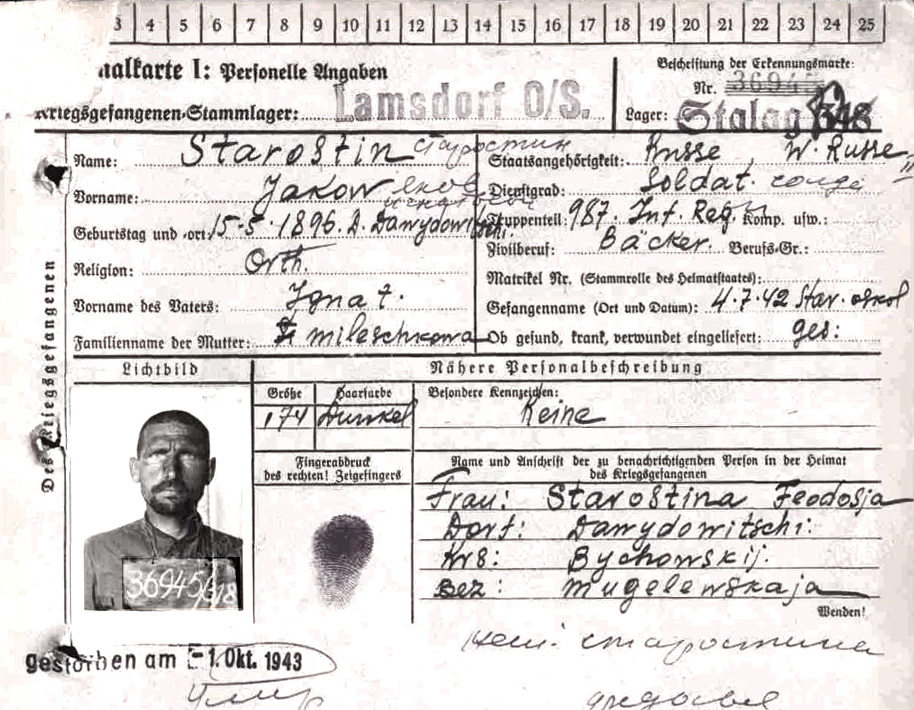 3 4 5 6 7 8 9 10 11 12 13 14 15 16 17 18 19 20 21 22 23 24 25
nalkarte I: Personelle Angaben
Kriegsgefangenen-Stammlager: Lamsdorf O/S.
Beschriftung der Erkennungsmarke:
Nr. 36945
Lager: Stalag 318
Des Kriegsgefangenen
Name: Staroštin Старостин
Vorname: Jakow Яков
Игнатович
Geburtstag und -ort: 15.5.1896. D. Dawydowitschi
Religion: Orth.
Vorname des Vaters: Ignat.
Familienname der Mutter: Mileschkowa
Staatsangehörigkeit: Russe W. Russe
Dienstgrad: Soldat.
Truppenteil: 987. Inf. Reg. Komp. usw.:
Zivilberuf: Bäcker. Berufs-Gr.:
Matrikel Nr. (Stammrolle des Heimatstaates):
Gefangenname (Ort und Datum): 4.7.42 Star. oskol
Ob gesund, krank, verwundet eingeliefert: ges:
Lichtbild
Nähere Personalbeschreibung
Größe Haarfarbe
174 Dunkel
Besondere Kennzeichen:
Keine
Fingerabdruck
des rechten! Zeigefingers
Name und Anschrift der zu benachrichtigenden Person in der Heimat
des Kriegsgefangenen
Frau: Staroština Feodosja
Dorf: Dawydowitschi:
Krs: Bychowskij.
Bez: Mugelewskaja
36945/318
Wenden!
старостина
gestorben am - 1. Okt. 1943
Умер